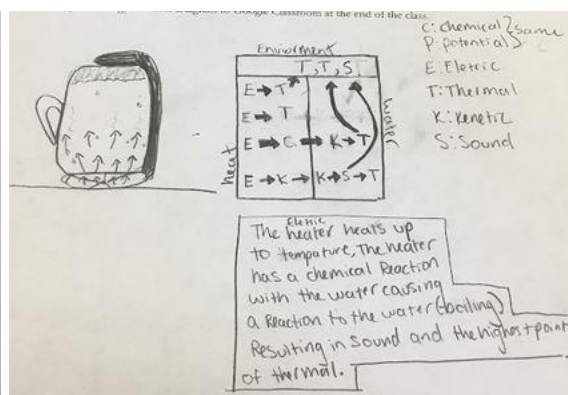 to Google Classroom at the end of the class.
C: chemical } same
P: potential }
E: Eletric
T: Thermal
K: Kenetic
S: Sound
Enviorment
T, T, S
heat
water
E → T
E → T
E → C → K → T
E → K → K → S → T
Eletric
The heater heats up
to tempature, The heater
has a chemical Reaction
with the water causing
a Reaction to the water (boiling)
Resulting in Sound and the highest point
of thermal.